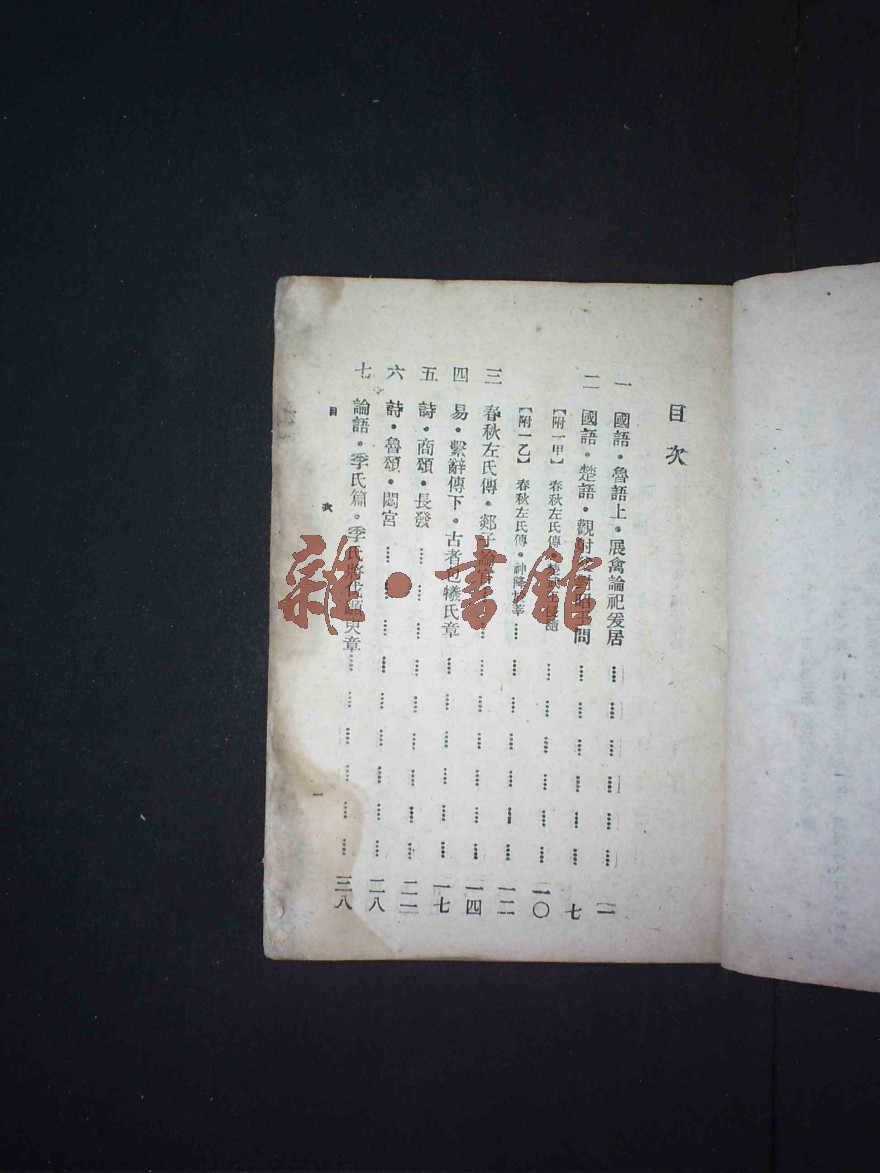 目次
一 國語・魯語上・展禽論祀爰居 二
二 國語・楚語・觀射父對昭王問 七
【附一甲】 春秋左氏傳・楚武王侵隨 一〇
【附一乙】 春秋左氏傳・神降於莘 一二
三 春秋左氏傳・郯子論官 一四
四 易・繫辭傳下・古者包犧氏章 一七
五 詩・商頌・長發 二二
六 詩・魯頌・閟宮 二八
七 論語・季氏篇・季氏將伐顓臾章 三八
目次 一
雜・書館